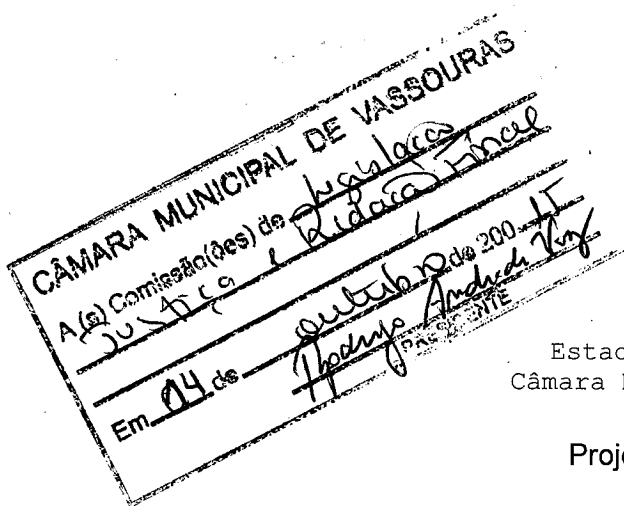 CÂMARA MUNICIPAL DE VASSOURAS
A (s) Comissão(ões) de Legislação
Justiça e Redação Final
Em 04 de outubro de 200
Rodrigo Andrade
PRESIDENTE
Estac
Câmara
Proje